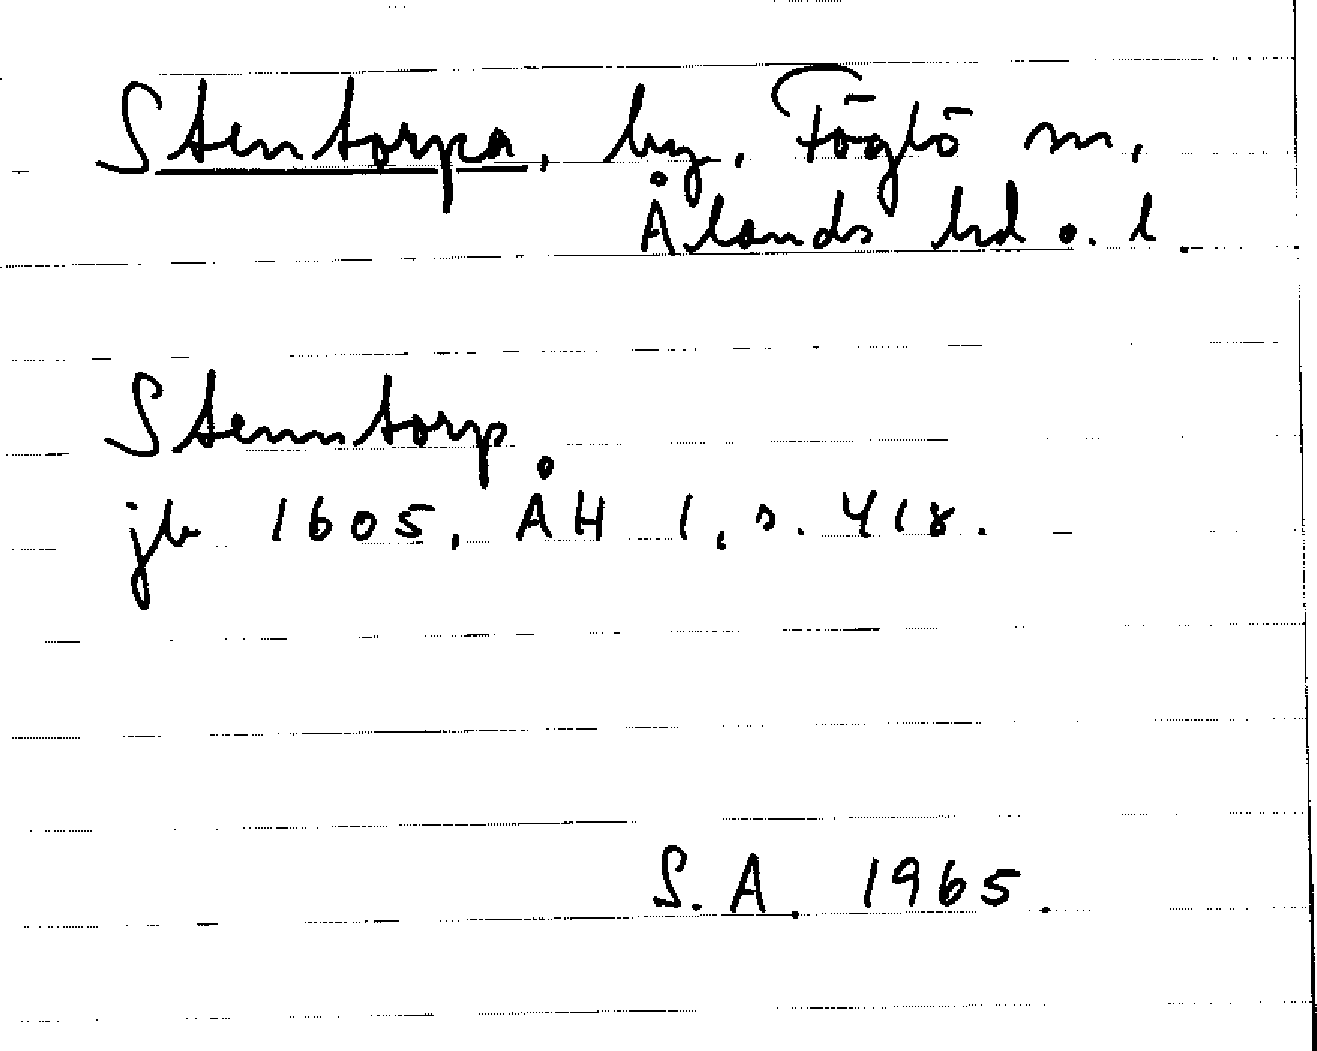 Stentorpa, by, Föglö sn,
Ålands hd o. l.
Stenntorp
jb 1605, ÅH 1, s. 418.
S.A. 1965.